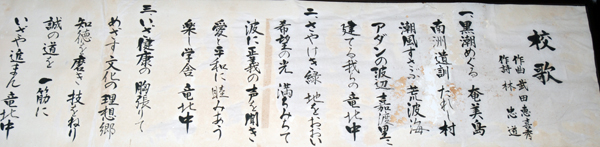 校歌
作曲 武田恵喜秀
作詩 林 忠道
一、黒潮めぐる 奄美島
南洲遺訓 たれし村
潮風すさぶ 荒波海
アダンの渡辺 嘉渡里に
建てる我らの 竜北中
二、さやけき緑 地をおおい
希望の光 満ちみちて
波に正義の 声を聞き
愛と平和に 睦みあう
楽し学舎 竜北中
三、いざ健康の 胸張りて
めざす文化の 理想郷
知徳を磨き 技をねり
誠の道を 一筋に
いざや進まん 竜北中